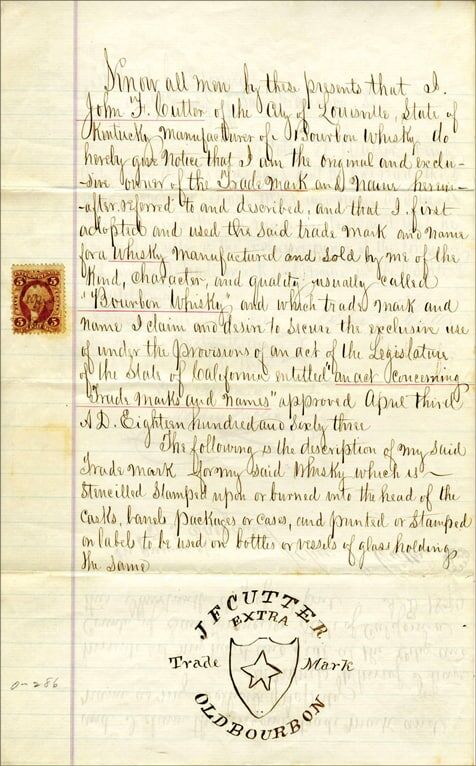 Know all men by these presents that I.
John F. Cutter of the City of Louisville, State of
Kentucky Manufacturer of Bourbon Whisky do
hereby give Notice that I am the original and exclu-
-sive owner of the Trade Mark and Name herein-
-after referred to and described, and that I first
adopted and used the said trade mark and name
for a Whisky Manufactured and Sold by me of the
Kind, Character, and quality usually called
"Bourbon Whisky" and which trade Mark and
name I claim and desire to secure the exclusive use
of under the Provisions of an act of the Legislature
of the State of California entitled "an act concerning
Trade Marks and names" approved April third
A.D. Eighteen hundred and sixty three
The following is the description of my said
Trade Mark for my said Whisky which is
Stencilled Stamped upon or burned into the head of the
Casks, barrels packages or cases, and printed or stamped
on label to be used on bottles or vessels of glass holding
the same
J F CUTTER
EXTRA
Trade Mark
OLD BOURBON
0-286
5 5